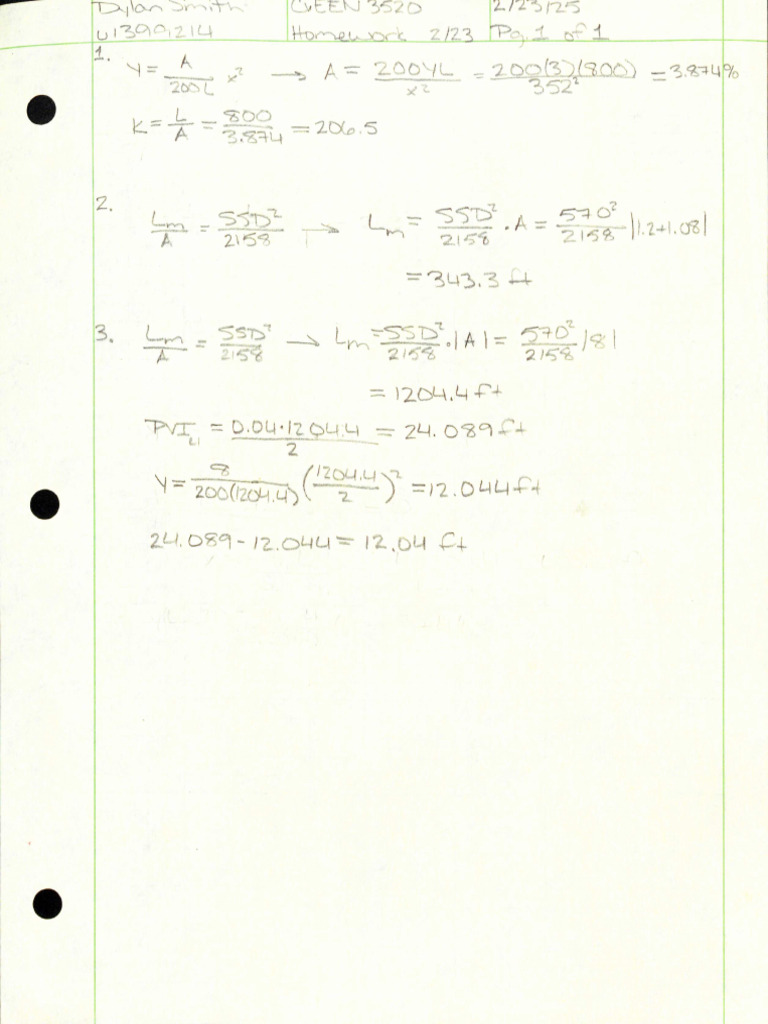 Dylan Smith CvEEN 3520 2/23/25
u1399214 Homework 2/23 Pg. 1 of 1
1. Y = A/200L x² → A = 200YL/x² = 200(3)(800)/352² = 3.874%
K = L/A = 800/3.874 = 206.5
2. Lm/A = SSD²/2158 → Lm = SSD²/2158 · A = 570²/2158 |1.2+1.08|
= 343.3 ft
3. Lm/A = SSD²/2158 → Lm = SSD²/2158 · |A| = 570²/2158 |8|
= 1204.4 ft
PVI = 0.04·1204.4/2 = 24.089 ft
Y = 8/200(1204.4) (1204.4/2)² = 12.044 ft
24.089 - 12.044 = 12.04 ft